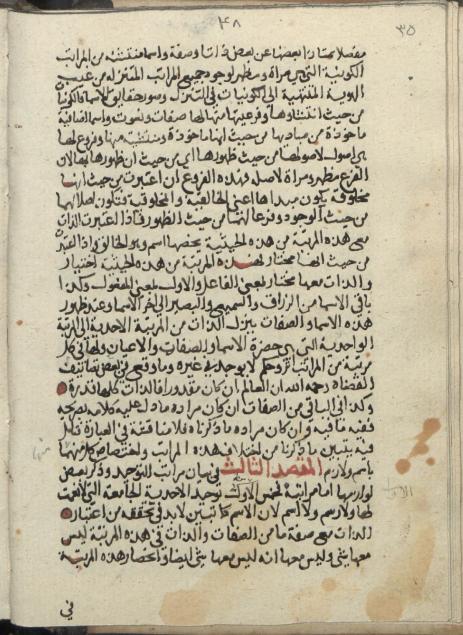 ٤٨
٣٥
مفصلا ممتازا بعضها عن بعض ذاتا وصفة واسما فنشئته من المراتب
الكونية التي هي مرآة ومظهر لوجود جميع المراتب المتنزلة من غيب
الهوية المنتهية الى الكونيات في التنزل وصور حقايق الاسما فالكونيا
من حيث انتشاؤها وفرعيتها منها لها صفات ونعوت واسما اضافية
ماخوذة من مباديها من حيث انها ماخوذة ومنتشئة منها وفروع لها
هي اصول لاصولها من حيث ظهورها اي من حيث ان ظهورها بها لان
الفرع مظهر ومرآة لاصله فهذه الفروع ان اعتبرت من حيث انها
مخلوقة يكون مبداها اعني الخالقية والمخلوقية فتكون اصلا لها
من حيث الوجود وفرعا لها من حيث الظهور فاذا اعتبرت الذات
مع هذه المرتبة من هذه الحيثية يخصها اسم وهو الخالق واذا اعتبر
من حيث انها مختار لهذه المرتبة من هذه الحيثية اختيار
والذات معها مختار بمعنى الفاعل والاول بمعنى المفعول وكذا
باقي الاسما من الرزاق والسميع والبصير الى آخر الاسما وعند ظهور
هذه الاسما والصفات ينزل الذات من المرتبة الاحدية الى المرتبة
الواحدية التي هي حضرة الاسما والصفات والاعيان ولها في كل
مرتبة من المراتب اثر وحكم لا يوجد في غيره وما وقع في بعض تصانيف
القضاة رحمه الله ان العالم ان كان مقدورا فالذات كلها قدرة
وكذا في الباقي من الصفات ان كان مراده ما دل عليه كلامه بصريحه
ففيه ما فيه وان كان مراده ما ذكرناه فلا مناقشة في العبارة تامل
فيه يتبين ما ذكرنا من اختلاف هذه المراتب واختصاص كل منها
باسم ولازم المقصد الثالث في بيان مراتب التوحيد وذكر بعض
لوازمها اما مراتبه فخمس الاول توحيد الاحدية الجامعة التي لا نعت
لها ولا رسم ولا اسم لان الاسم كما تبين لابد في تحققه من اعتبار
الذات مع صفة ما من الصفات والذات في هذه المرتبة ليس
معها شي وليس معها انه ليس معها شي ايضا وانحصار هذه المرتبة
في